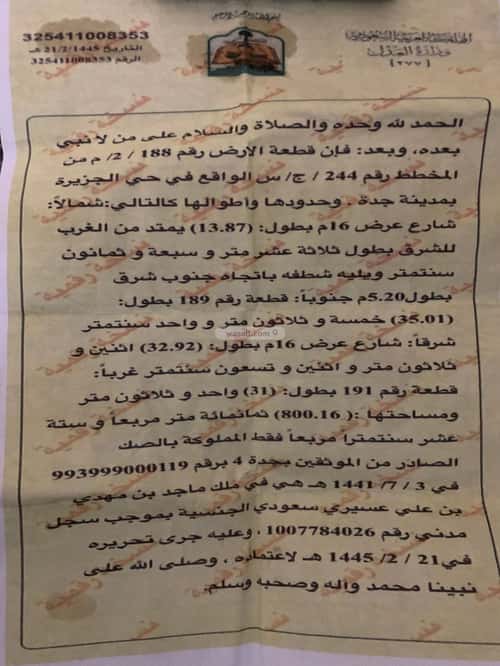 بسم الله الرحمن الرحيم
المملكة العربية السعودية
وزارة العدل
(٢٧٧)
325411008353
التاريخ 21/2/1445 هـ
الرقم 325411008353
الحمد لله وحده والصلاة والسلام على من لا نبي
بعده، وبعد: فإن قطعة الأرض رقم 188 / 2/ م من
المخطط رقم 244 / ج/ س الواقع في حي الجزيرة
بمدينة جدة . وحدودها وأطوالها كالتالي: شمالاً:
شارع عرض 16م بطول: (13.87) يمتد من الغرب
للشرق بطول ثلاثة عشر متر و سبعة و ثمانون
سنتمتر ويليه شطفه باتجاه جنوب شرق
بطول5.20م جنوباً: قطعة رقم 189 بطول:
(35.01) خمسة و ثلاثون متر و واحد سنتمتر
شرقاً: شارع عرض 16م بطول: (32.92) اثنين و
ثلاثون متر و اثنين و تسعون سنتمتر غرباً:
قطعة رقم 191 بطول: (31) واحد و ثلاثون متر
ومساحتها :( 800.16) ثمانمائة متر مربعاً و ستة
عشر سنتمترا مربعاً فقط المملوكة بالصك
الصادر من الموثقين بجدة 4 برقم 993999000119
في 3 / 7/ 1441 هـ هي في ملك ماجد بن مهدي
بن علي عسيري سعودي الجنسية بموجب سجل
مدني رقم 1007784026 , وعليه جرى تحريره
في 21 / 2/ 1445 هـ لاعتماده , وصلى الله على
نبينا محمد وآله وصحبه وسلم.
نسخة رقمية
wasalt.com